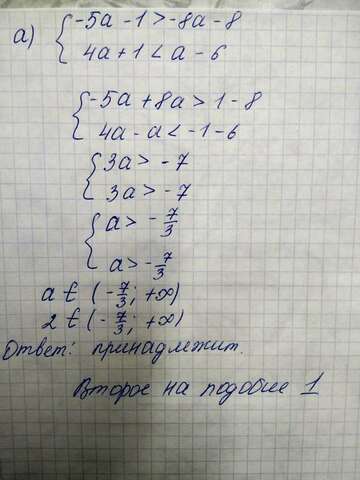 а) { -5a - 1 > -8a - 8
4a + 1 < a - 6
{ -5a + 8a > 1 - 8
4a - a < -1 - 6
{ 3a > -7
3a > -7
{ a > -7/3
a > -7/3
a ∈ (-7/3; +∞)
2 ∈ (-7/3; +∞)
Ответ: принадлежит.
Второе на подобие 1